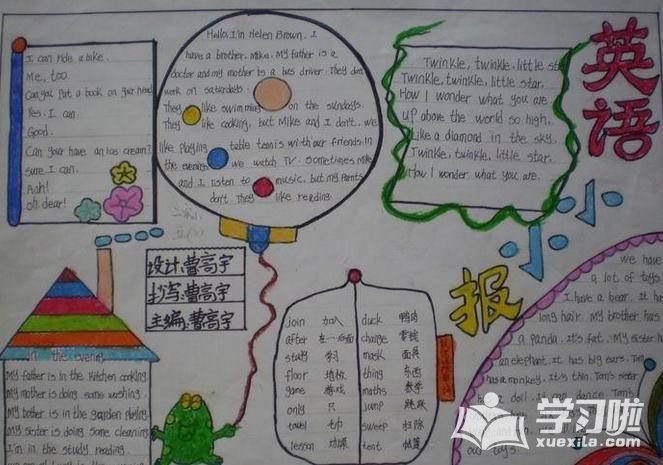 I can ride a bike.
Me, too.
Can you put a book on your head
Yes. I can.
Good.
Can your have an ice cream?
sure. I can.
Aah!
oh dear!
Hello, I'm Helen Brown. I
have a brother, Mike. My father is a
doctor and my mother is a bus driver. They don't
work on saturdays.
They like swimming on the sundays.
They like cooking, but Mike and I don't. we
like playing table tennis with our friends. In
the evening we watch TV. Sometimes Mike
and I listen to music, but my Parents
don't. They like reading.
Twinkle, twinkle, little star
Twinkle, twinkle, little star.
How I wonder what you are
up above the world so high,
Like a diamond in the sky.
Twinkle, twinkle, little star.
How I wonder what you are.
英语
小小
报
设计:曹高宇
抄写:曹高宇
主编:曹高宇
In the evening
My father is in the kitchen cooking
My mother is doing some washing
My bother is in the garden playing
My sister is doing some cleaning
I'm in the study reading
join 加入
after 在…后面
study 学习
floor 地板
game 游戏
only 只
towel 毛巾
lesson 功课
duck 鸭肉
change 零钱
mask 面具
thing 东西
maths 数学
jump 跳跃
sweep 扫除
tent 帐篷
we have
a lot of toys.
I have a bear. It has
long hair. My brother has
a panda. It's fat. My sister has
an elephant. It has big ears. Tom
has a monkey. It's thin. Tom's sister
has doll. It can dance. Tom's
our toys.
学习啦
xuexila.com